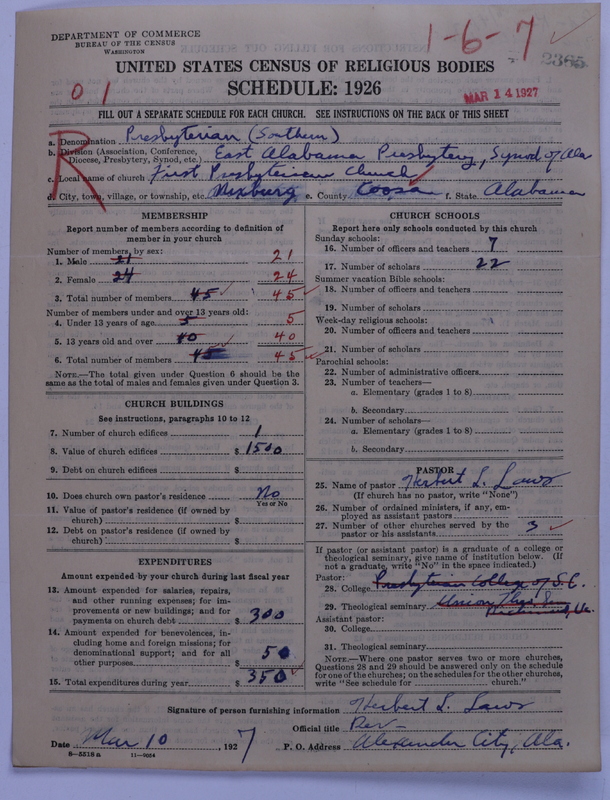 DEPARTMENT OF COMMERCE
BUREAU OF THE CENSUS
WASHINGTON
1-6-7
2365
UNITED STATES CENSUS OF RELIGIOUS BODIES
SCHEDULE: 1926
01
MAR 14 1927
FILL OUT A SEPARATE SCHEDULE FOR EACH CHURCH. SEE INSTRUCTIONS ON THE BACK OF THIS SHEET
R
a. Denomination Presbyterian (Southern)
b. Division (Association, Conference, Diocese, Presbytery, Synod, etc.) East Alabama Presbytery, Synod of Ala
c. Local name of church First Presbyterian Church
d. City, town, village, or township, etc. Nixburg e. County Coosa f. State Alabama
MEMBERSHIP
Report number of members according to definition of
member in your church
Number of members, by sex:
1. Male 21 21
2. Female 24 24
3. Total number of members 45 45
Number of members under and over 13 years old:
4. Under 13 years of age 5 5
5. 13 years old and over 40 40
6. Total number of members 45 45
NOTE.—The total given under Question 6 should be
same as the total of males and females given under Question 3.
CHURCH BUILDINGS
See instructions, paragraphs 10 to 12
7. Number of church edifices 1
8. Value of church edifices $ 1500
9. Debt on church edifices $
10. Does church own pastor's residence No
Yes or No
11. Value of pastor's residence (if owned by
church) $
12. Debt on pastor's residence (if owned by
church) $
EXPENDITURES
Amount expended by your church during last fiscal year
13. Amount expended for salaries, repairs,
and other running expenses; for im-
provements or new buildings; and for
payments on church debt $ 300
14. Amount expended for benevolences, in-
cluding home and foreign missions; for
denominational support; and for all
other purposes $ 50
15. Total expenditures during year $ 350
CHURCH SCHOOLS
Report here only schools conducted by this church
Sunday schools:
16. Number of officers and teachers 7
17. Number of scholars 22
Summer vacation Bible schools:
18. Number of officers and teachers
19. Number of scholars
Week-day religious schools:
20. Number of officers and teachers
21. Number of scholars
Parochial schools:
22. Number of administrative officers
23. Number of teachers—
a. Elementary (grades 1 to 8)
b. Secondary
24. Number of scholars—
a. Elementary (grades 1 to 8)
b. Secondary
PASTOR
25. Name of pastor Herbert L. Laws
(If church has no pastor, write "None")
26. Number of ordained ministers, if any, em-
ployed as assistant pastors
27. Number of other churches served by the
pastor or his assistants 3
If pastor (or assistant pastor) is a graduate of a college or
theological seminary, give name of institution below. (If
not a graduate, write "No" in the space indicated.)
Pastor:
28. College Presbyterian College of S.C.
29. Theological seminary Union Theo. S. Richmond, Va.
Assistant pastor:
30. College
31. Theological seminary
NOTE.—Where one pastor serves two or more churches,
Questions 28 and 29 should be answered only on the schedule
for one of the churches; on the schedules for the other churches,
write "See schedule for church."
Signature of person furnishing information Herbert L. Laws
Official title Rev-
Date Mar 10, 1927 P. O. Address Alexander City, Ala.
8—5518a 11—9054